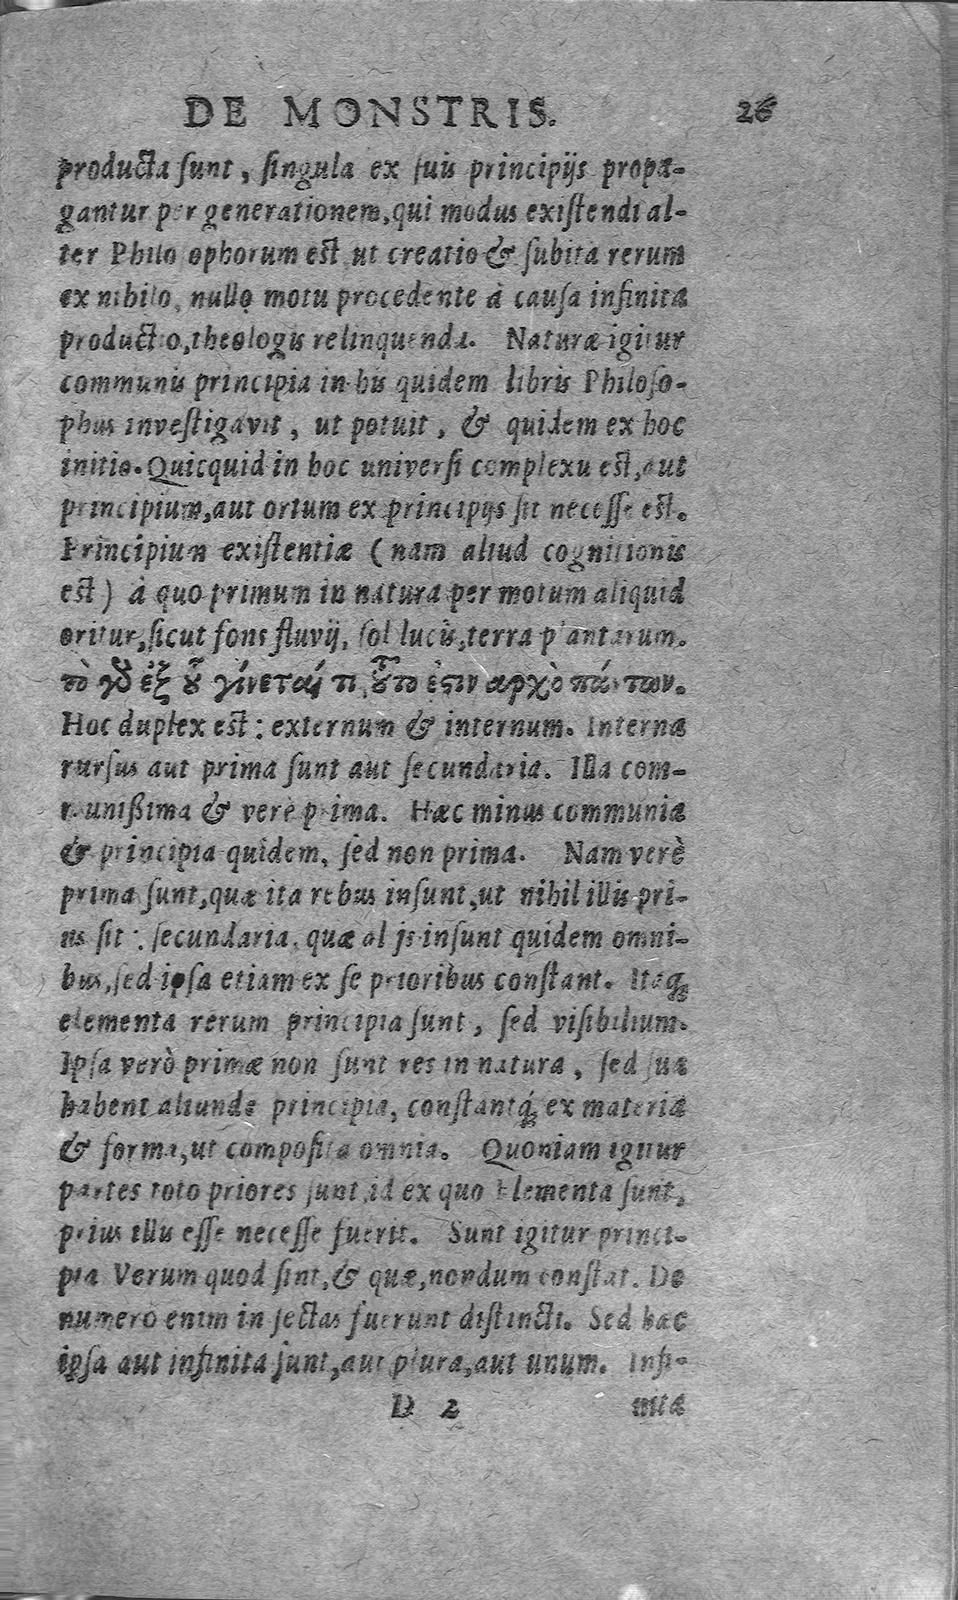 DE MONSTRIS. 26
producta ſunt, ſingula ex ſuis principijs propa-
gantur per generationem, qui modus exiſtendi al-
ter Philoſophorum eſt ut creatio & ſubita rerum
ex nihilo, nullo motu procedente à cauſa infinita
productio, theologis relinquenda. Naturæ igitur
communis principia in his quidem libris Philoſo-
phus inveſtigavit, ut potuit, & quidem ex hoc
initio. Quicquid in hoc univerſi complexu eſt, aut
principium, aut ortum ex principijs ſit neceſſe eſt.
Principium exiſtentiæ (nam aliud cognitionis
eſt) à quo primum in natura per motum aliquid
oritur, ſicut fons fluvij, ſol lucis, terra plantarum.
τὸ γὸ ἐξ ȣ̃ γίνεταί τι, ȣ̃το ἐϛιν αρχὸ πάντων.
Hoc duplex eſt: externum & internum. Interna
rurſus aut prima ſunt aut ſecundaria. Illa com-
muniſſima & verè prima. Hæc minus communia
& principia quidem, ſed non prima. Nam verè
prima ſunt, quæ ita rebus inſunt, ut nihil illis pri-
us ſit: ſecundaria, quæ alijs inſunt quidem omni-
bus, ſed ipſa etiam ex ſe prioribus conſtant. Itaq;
elementa rerum principia ſunt, ſed viſibilium.
Ipſa verò primæ non ſunt res in natura, ſed ſua
habent aliunde principia, conſtantq́; ex materia
& forma, ut compoſita omnia. Quoniam igitur
partes toto priores ſunt, id ex quo Elementa ſunt,
prius illis eſſe neceſſe fuerit. Sunt igitur princi-
pia Verum quod ſint, & quæ, nondum conſtat. De
numero enim in ſectas fuerunt diſtincti. Sed hæc
ipſa aut infinita ſunt, aut plura, aut unum. Infi-
D 2 nita